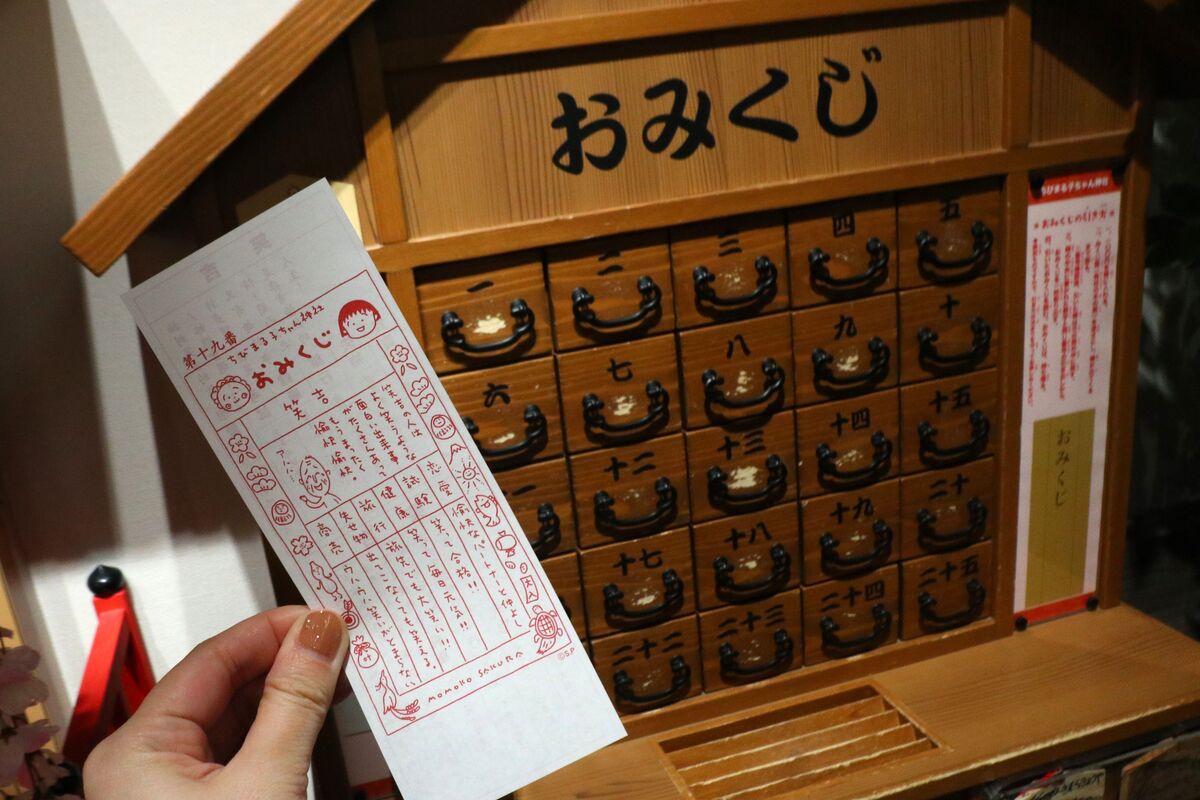 おみくじ
一
二
三
四
五
六
七
八
九
十
十二
十三
十四
十五
十七
十八
十九
二十
二十二
二十三
二十四
二十五
ちびまる子ちゃん神社
おみくじの引き方
おみくじ
第十九番
ちびまる子ちゃん神社
おみくじ
笑吉
笑吉の人は
よく笑うような
面白い出来事
がたくさんあって
もうまったく
愉快愉快。
恋愛 愉快なパートナーと仲よし
試験 笑って合格!!
健康 笑って毎日元気!!
旅行 旅先でも大笑い!!
失せ物 出てこなくても笑える。
商売 ウハウハ笑いがとまらない
MOMOKO SAKURA
©S.P